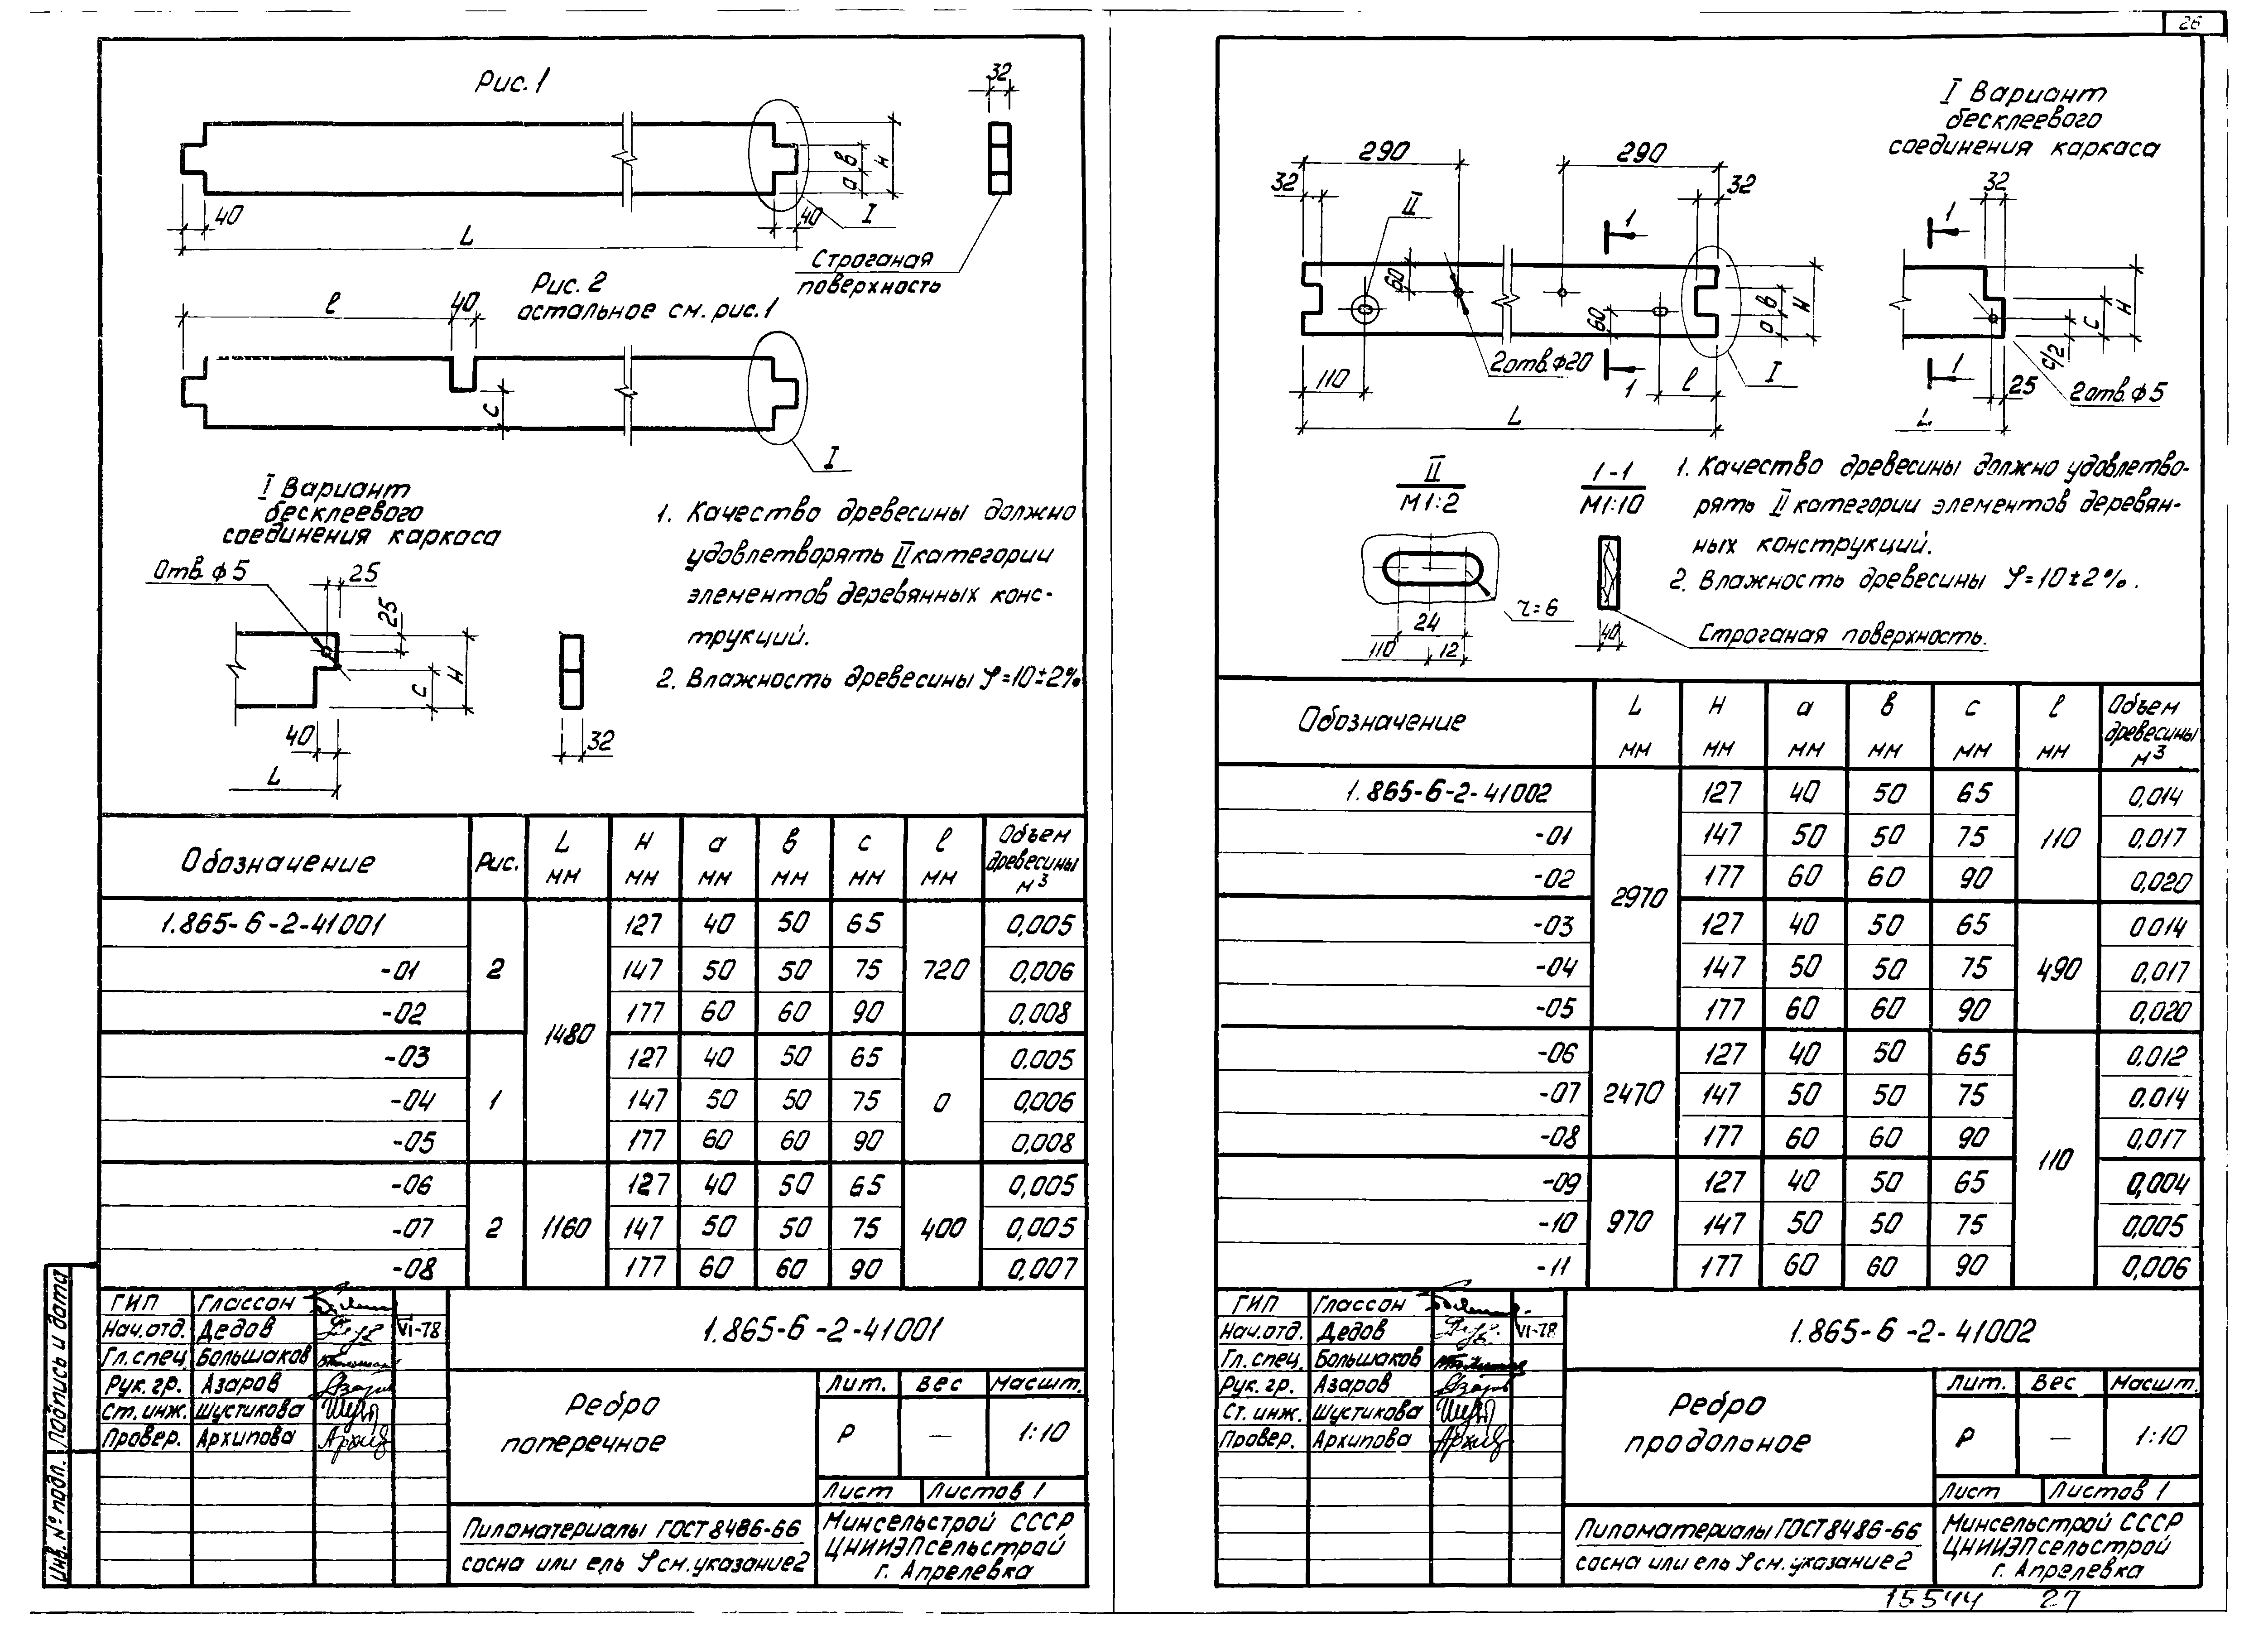 26
Рис. 1
32
в
а
н
40
40
I
L
Строганая
поверхность
Рис. 2
остальное см. рис. 1
ℓ
40
с
I
I Вариант
бесклеевого
соединения каркаса
Отв. ф 5
25
25
с
н
40
L
32
1. Качество древесины должно
удовлетворять II категории
элементов деревянных конс-
трукций.
2. Влажность древесины φ=10±2%
Обозначение Рис. L мм Н мм а мм в мм с мм ℓ мм Объем древесины м³
1.865-6-2-41001 2 1480 127 40 50 65 720 0,005
-01 147 50 50 75 0,006
-02 177 60 60 90 0,008
-03 1 127 40 50 65 0 0,005
-04 147 50 50 75 0,006
-05 177 60 60 90 0,008
-06 2 1160 127 40 50 65 400 0,005
-07 147 50 50 75 0,005
-08 177 60 60 90 0,007
ГИП Глассон
Нач.отд. Дедов VI-78
Гл. спец. Большаков
Рук. гр. Азаров
Ст. инж. Шустикова
Провер. Архипова
1.865-6-2-41001
Ребро
поперечное
Лит. Вес Масшт.
Р — 1:10
Лист Листов 1
Пиломатериалы ГОСТ 8486-66
сосна или ель φ см. указание 2
Минсельстрой СССР
ЦНИИЭПсельстрой
г. Апрелевка
Инв. № подл. Подпись и дата
290
290
32
32
II
1
60
60
в
а
н
2 отв. ф20
110
1
ℓ
I
L
I Вариант
бесклеевого
соединения каркаса
32
1
н
с
с/2
1
25
2 отв. ф 5
L
II
М1:2
r=6
24
110
12
1-1
М1:10
40
Строганая поверхность.
1. Качество древесины должно удовлетво-
рять II категории элементов деревян-
ных конструкций.
2. Влажность древесины φ=10±2%.
Обозначение L мм Н мм а мм в мм с мм ℓ мм Объем древесины м³
1.865-6-2-41002 2970 127 40 50 65 110 0,014
-01 147 50 50 75 0,017
-02 177 60 60 90 0,020
-03 127 40 50 65 490 0.014
-04 147 50 50 75 0,017
-05 177 60 60 90 0,020
-06 2470 127 40 50 65 110 0.012
-07 147 50 50 75 0.014
-08 177 60 60 90 0,017
-09 970 127 40 50 65 0,004
-10 147 50 50 75 0,005
-11 177 60 60 90 0,006
ГИП Глассон
Нач.отд. Дедов VI-78
Гл. спец. Большаков
Рук. гр. Азаров
Ст. инж. Шустикова
Провер. Архипова
1.865-6-2-41002
Ребро
продольное
Лит. Вес Масшт.
Р — 1:10
Лист Листов 1
Пиломатериалы ГОСТ 8486-66
сосна или ель φ см. указание 2
Минсельстрой СССР
ЦНИИЭПсельстрой
г. Апрелевка
15544 27